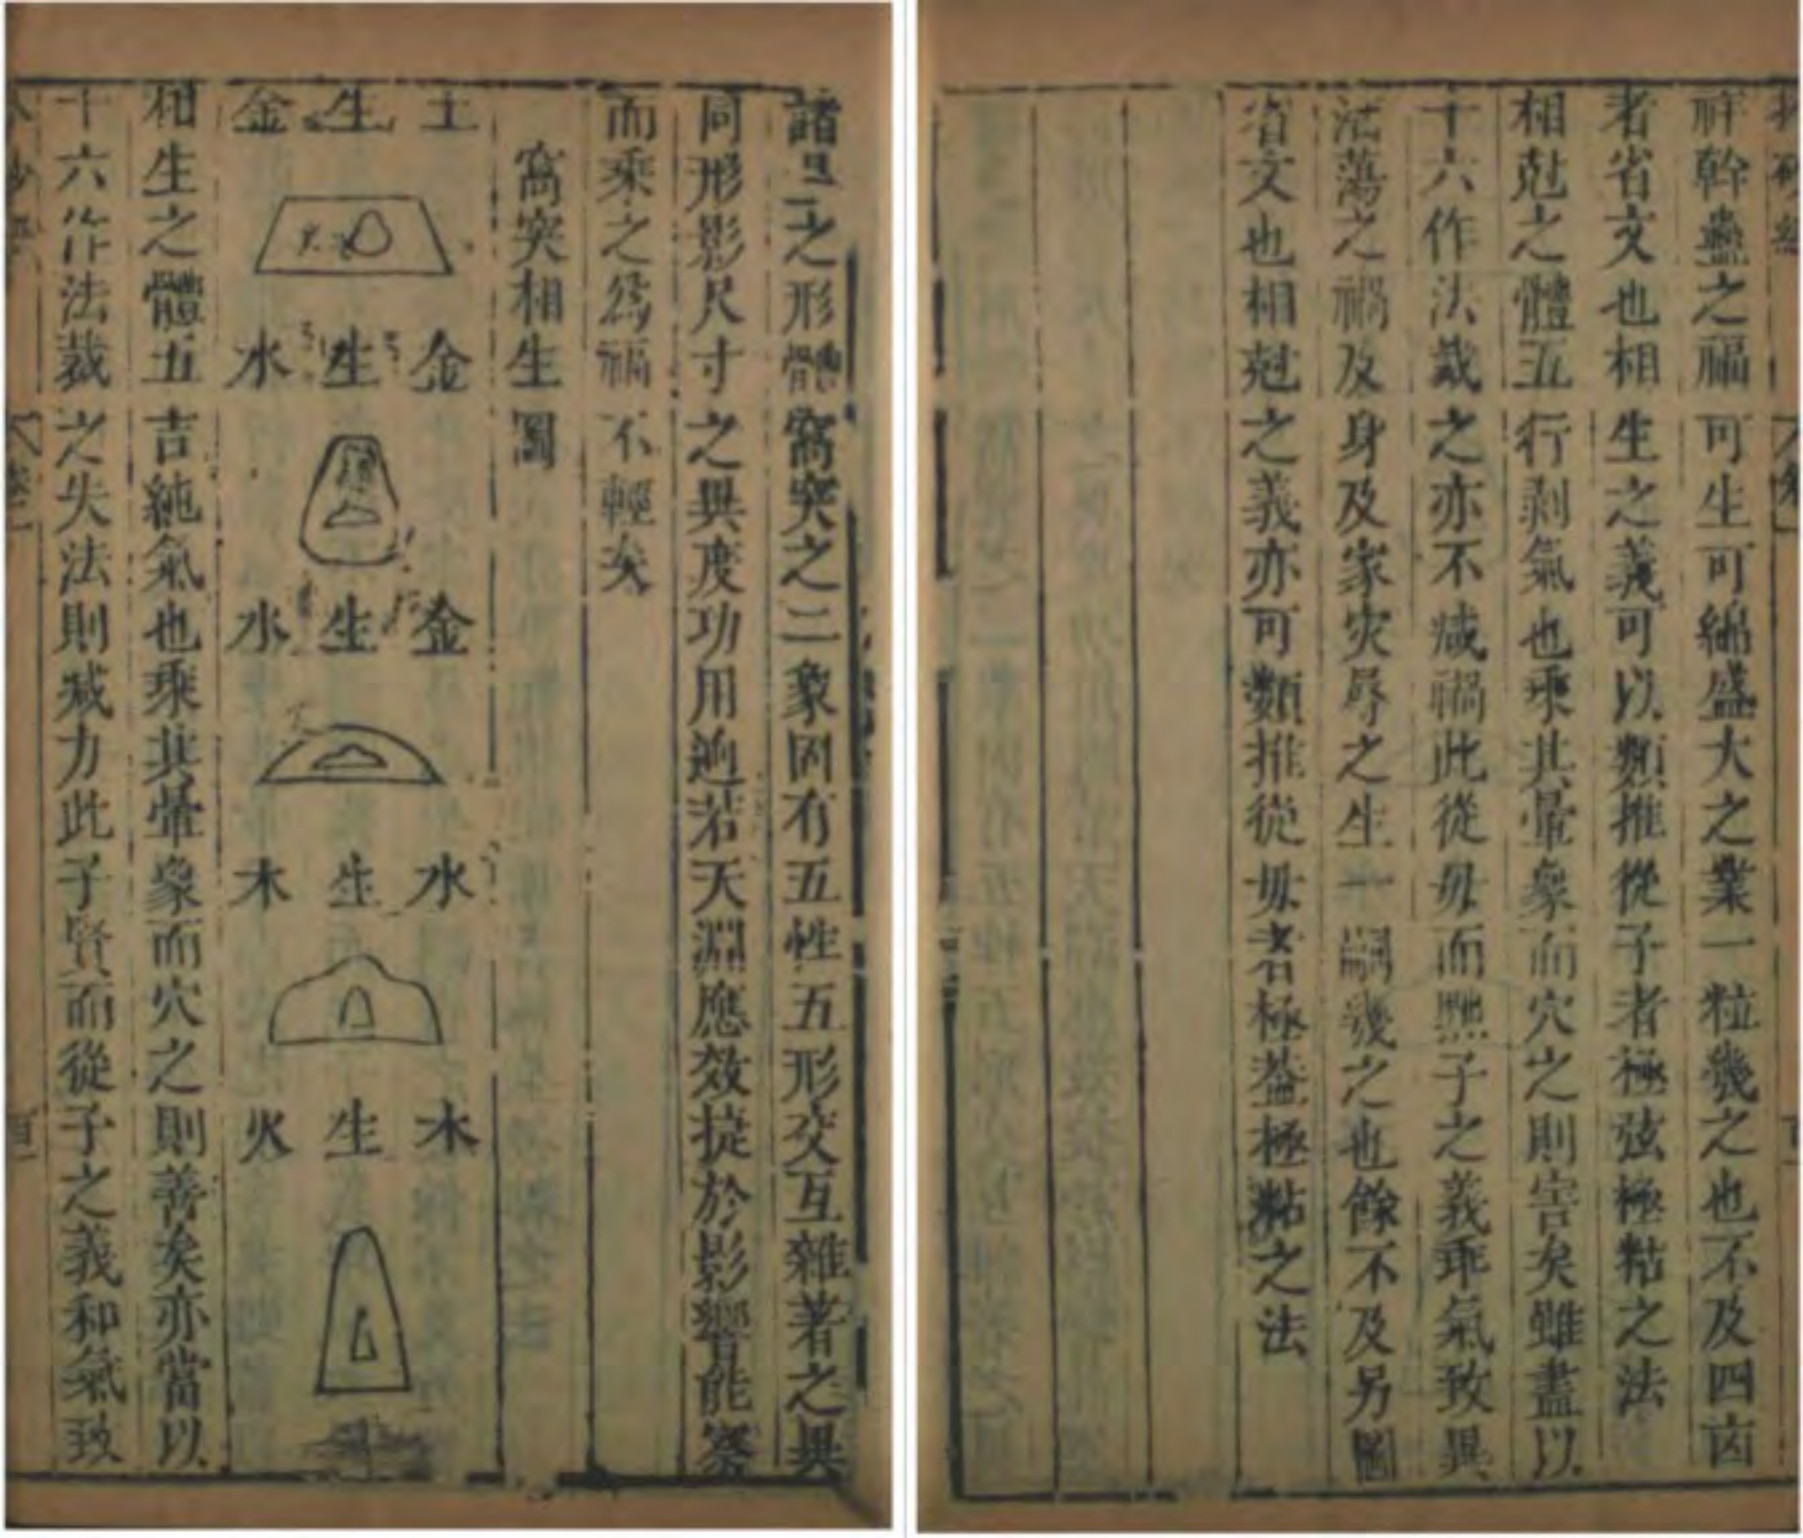 諸星之形體窩突之二象固有五性五形交互雜著之異
同形影尺寸之異度功用逈若天淵應效捷於影響能察
而乘之爲福不輕矣
窩突相生圖
土生金
金生水
金生水
水生木
木生火
相生之體五吉純氣也乘其暈象而穴之則善矣亦當以
十六作法裁之失法則减力此子賢而從子之義和氣致
祥幹蠱之福可生可綿盛大之業一粒幾之也不及四
者省文也相生之義可以類推從子者極弦極粘之法
相尅之體五行剥氣也乘其暈象而穴之則害矣雖盡以
十六作法裁之亦不减禍此從毋而子之義乖氣致異
蕩之禍及身及家灾辱之生一嗣幾之也餘不及另圖
省文也相尅之義亦可類推從毋者極葢極粘之法